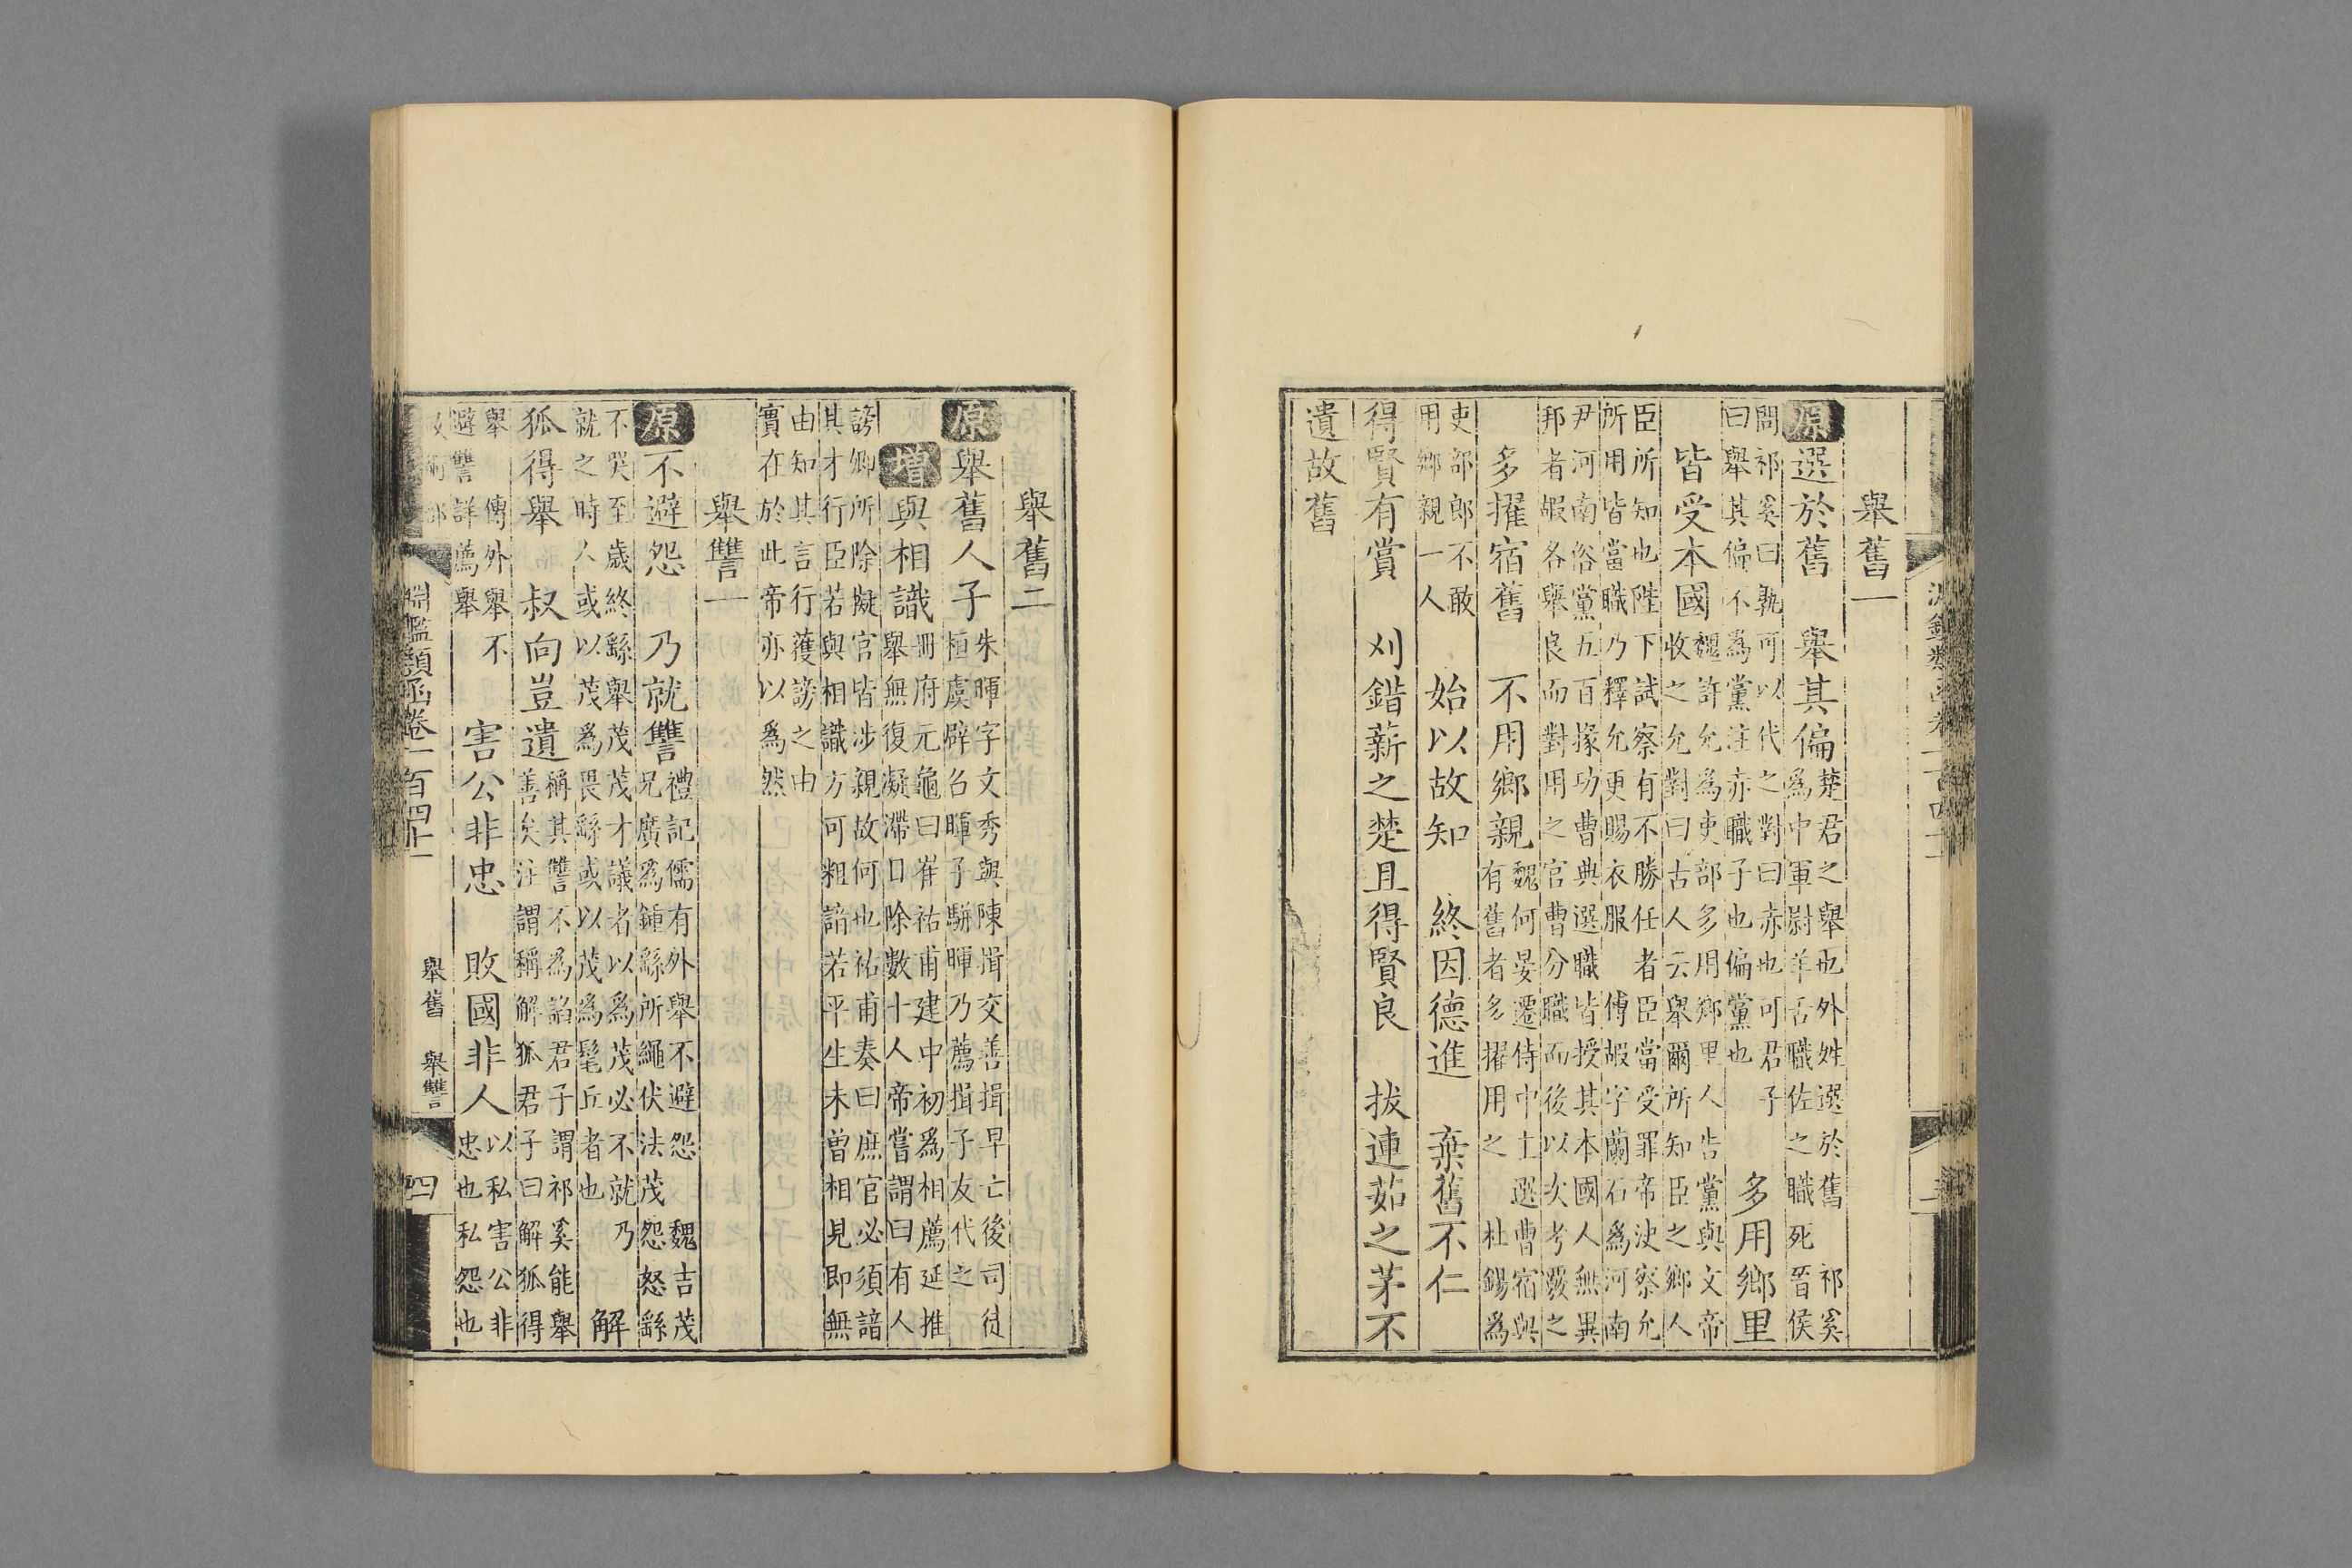 舉舊一
原選於舊　舉其偏楚君之舉也外姓選於舊　祁奚
爲中軍尉羊舌職佐之職死晉侯
問祁奚曰孰可以代之對曰赤也可君子
曰舉其偏不爲黨注赤職子也偏黨也　多用鄉里
皆受本國魏許允爲吏部多用鄉里人告黨與文帝
收之允對曰古人云舉爾所知臣之鄉人
臣所知也陛下試察有不勝任者臣當受罪帝決察允
所用皆當職乃釋允更賜衣服　傅嘏字蘭石爲河南
尹河南俗黨五百掾功曹典選職皆授其本國人無異
邦者嘏各舉良而對用之官曹分職而後以次考覈之
多擢宿舊　不用鄉親魏何晏遷侍中主選曹宿與
有舊者多擢用之　杜錫爲
吏部郎不敢
用鄉親一人　始以故知　終因德進　棄舊不仁
得賢有賞　刈錯薪之楚且得賢良　拔連茹之茅不
遺故舊
舉舊二
原舉舊人子朱暉字文秀與陳揖交善揖早亡後司徒
桓虞辟召暉子駢暉乃薦揖子友代之
增與相識冊府元龜曰崔祐甫建中初爲相薦延推
舉無復凝滯日除數十人帝嘗謂曰有人
謗卿所除擬官皆涉親故何也祐甫奏曰庶官必須諳
其才行臣若與相識方可粗諳若平生未曾相見卽無
由知其言行獲謗之由
實在於此帝亦以爲然
舉讐一
原不避怨　乃就讐禮記儒有外舉不避怨　魏吉茂
兄廣爲鍾繇所繩伏法茂怨怒繇
不哭至歲終繇舉茂茂才議者以爲茂必不就乃
就之時人或以茂爲畏繇或以茂爲髦丘者也　解
狐得舉　叔向豈遺稱其讐不爲諂君子謂祁奚能舉
善矣注謂稱解狐君子曰解狐得
舉　傳外舉不
避讐詳薦舉　害公非忠　敗國非人以私害公非
忠也私怨也
淵鑑類函卷一百四十一
舉舊　舉讐
四